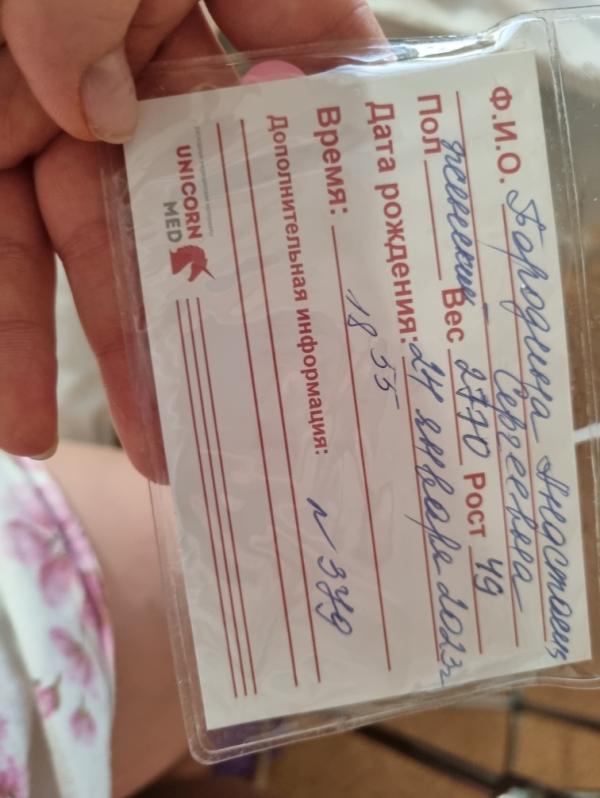 Ф.И.О. Бородина Анастасия
Сергеевна
Пол женский Вес 2770 Рост 49
Дата рождения: 24 января 2023г
Время: 18 55
Дополнительная информация: N 379
UNICORN
MED